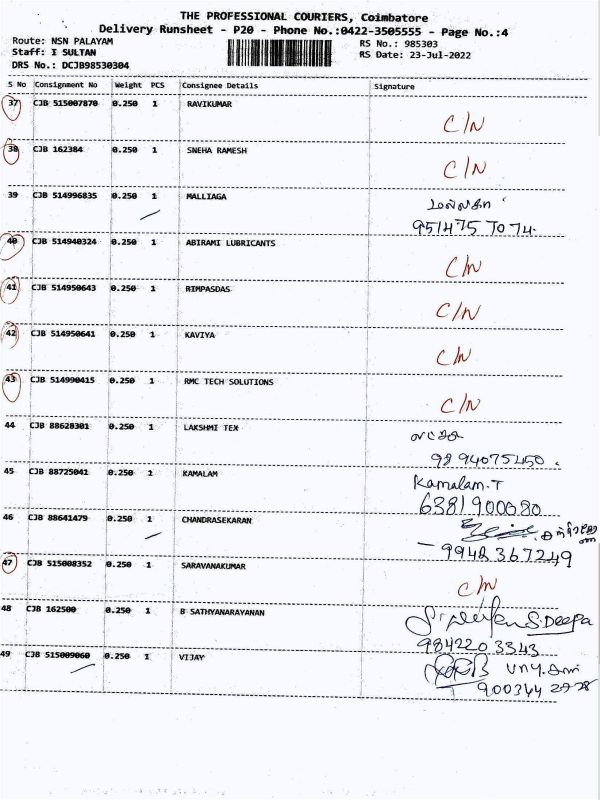 THE PROFESSIONAL COURIERS, Coimbatore
Delivery Runsheet - P20 - Phone No.:0422-3505555 - Page No.:4
Route: NSN PALAYAM RS No.: 985303
Staff: I SULTAN RS Date: 23-Jul-2022
DRS No.: DCJB98530304
S No Consignment No Weight PCS Consignee Details Signature
37 CJB 515007870 0.250 1 RAVIKUMAR
C/N
38 CJB 162384 0.250 1 SNEHA RAMESH
C/N
39 CJB 514996835 0.250 1 MALLIAGA
மல்லிகா
951475 7074
40 CJB 514940324 0.250 1 ABIRAMI LUBRICANTS
C/N
41 CJB 514950643 0.250 1 RIMPASDAS
C/N
42 CJB 514950641 0.250 1 KAVIYA
C/N
43 CJB 514990415 0.250 1 RMC TECH SOLUTIONS
C/N
44 CJB 88628301 0.250 1 LAKSHMI TEX
9894075450.
45 CJB 88725041 0.250 1 KAMALAM
Kamalam.T
6381900080
46 CJB 88641479 0.250 1 CHANDRASEKARAN
9942367249
47 CJB 515008352 0.250 1 SARAVANAKUMAR
C/N
48 CJB 162500 0.250 1 B SATHYANARAYANAN
S.Deepa
9842203343
49 CJB 515009060 0.250 1 VIJAY